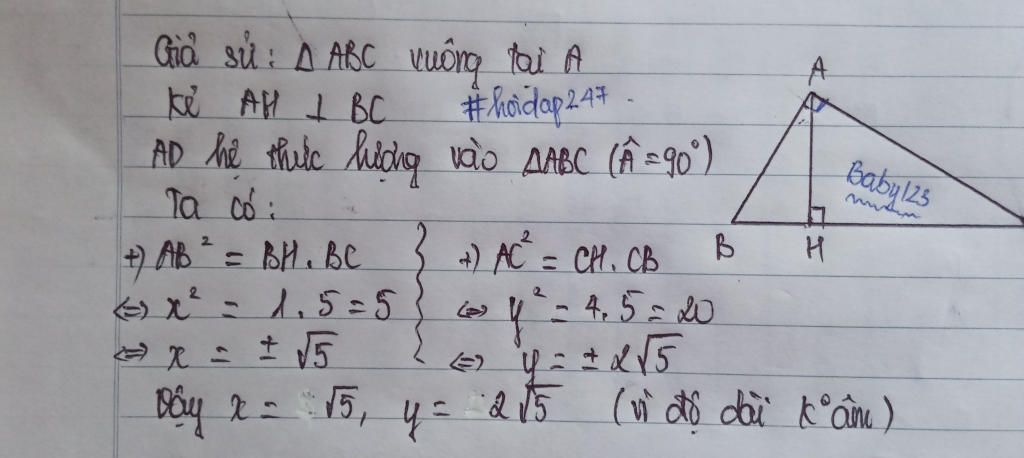 Giả sử: Δ ABC vuông tại A
Kẻ AH ⊥ BC #hoidap247.
AD hệ thức lượng vào ΔABC (Â = 90°)
Ta có:
+) AB² = BH. BC
⇔ x² = 1. 5 = 5
⇔ x = ± √5
+) AC² = CH. CB
⇔ y² = 4. 5 = 20
⇔ y = ± 2√5
Vậy x = √5, y = 2√5 (vì độ dài k° âm)
A
Baby123
B H